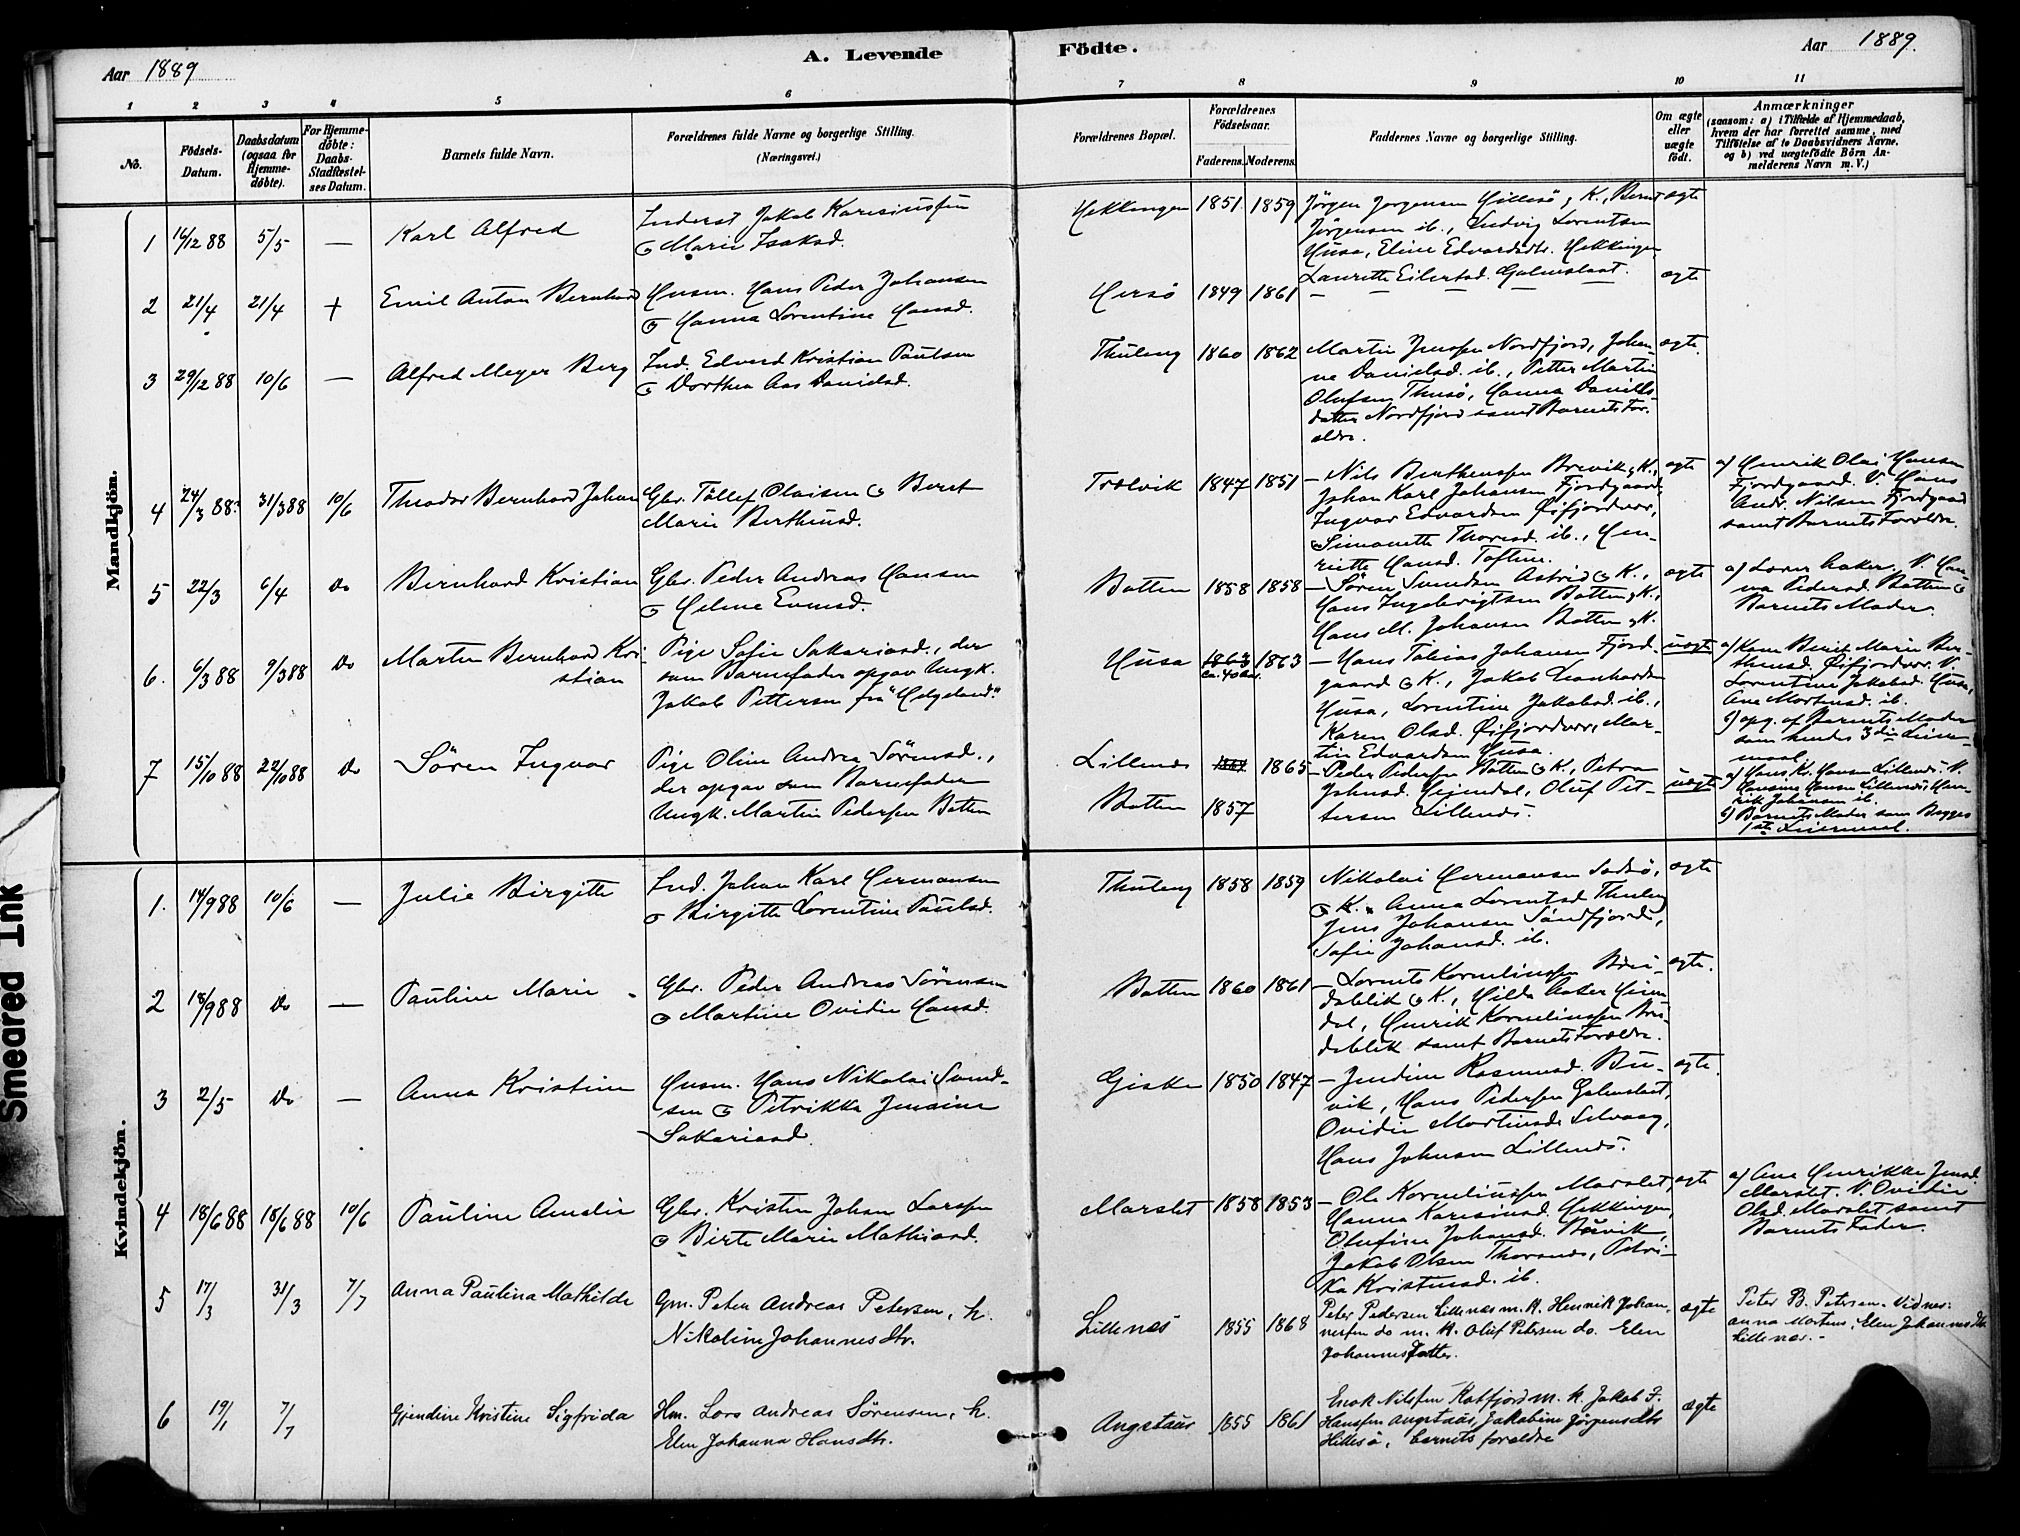 Aar 1889
A. Levende
Födte.
Aar 1889.
1 2 3 4 5 6 7 8 9 10 11
No.
Födsels-Datum.
Daabsdatum (ogsaa for Hjemme-döbte).
For Hjemme-döbte: Daabs-Stadfæstel-ses Datum.
Barnets fulde Navn.
Forældrenes fulde Navne og borgerlige Stilling.
(Næringsvei.)
Forældrenes Bopæl.
Forældrenes Födselsaar.
Faderens. Moderens.
Faddernes Navne og borgerlige Stilling.
Om ægte eller uægte födt.
Anmærkninger
(saasom: a) i Tilfælde af Hjemmedaab, hvem der har forrettet samme, med Tilföielse af to Daabsvidners Navne, og b) ved uægtefödte Börn An-melderens Navn m. V.)
Mandkjön.
1 16/12 88 5/5 — Karl Alfred
Inderst Jakob Karesiussen
& Marie Isaksd.
Hekkingen 1851. 1859
Jørgen Jørgensen Hillesö, K., Bernt
Jørgensen ib., Ludvig Lorentsen
Husa, Eline Edvardsdtr. Hekkingen
Laurette Eilertsd. Galmslaat.
ægte
2 21/4 21/4 + Emil Anton Bernhard
Husm. Hans Peder Johansen
& Hanna Lorentine Hansd.
Hersö 1849 1861 — — — — — ægte
3 29/12 88 10/6 — Alfred Meyer Berg
Ind. Edvard Kristian Paulsen
& Dorthea Aas Danielsd.
Thuleng 1860 1862
Martin Jenssen Nordfjord, Johan-
ne Danielsd. ib., Petter Martin
Olufsen Thusö, Hanna Daniels-
datter Nordfjord samt Barnets For-
ældre.
ægte.
4 24/3 88. 31/3 88 10/6 Theodor Bernhard Johan
Gbr. Tållef Olaisen & Berit
Marie Bertheusd.
Trælvik 1847 1851
— Nils Bertheussen Brevik & K.,
Johan Karl Johansen Fjordgaard,
Ingvar Edvardsen Øifjordvær,
Simonette Thoresd. ib., Hen-
riette Hansd. Toften.
ægte
a) Henrik Olai Hansen
Fjordgaard. V. Hans
Andr. Nilsen Fjordgaard
samt Barnets Forældre.
5 22/3 6/4 Do Bernhard Kristian
Gbr. Peder Andreas Hansen
& Helene Evensd.
Botten 1858 1858
— Søren Svendsen Astrid & K.,
Hans Ingebrigtsen Botten & K.,
Hans M. Johansen Botten & K.
ægte
a) Lærer Aaker. V. Han-
na Pedersd. Botten &
Barnets Moder.
6. 6/3 88 9/3 88 Do Martin Bernhard Kri-
stian
Pige Sofie Sakariasd., der
som Barnefader opgav Ungk.
Jakob Pettersen fra "Helgeland."
Husa 1863 ca. 40 Aar. 1863
— Hans Tobias Johansen Fjord-
gaard & K., Jakob Leonhardsen
Husa, Lorentine Jakobsd. ib.,
Karen Olsd. Øifjordvær, Mar-
tin Edvardsen Husa.
uægte
a) Kone Berit Marie Ber-
theusd. Øifjordvær. V.
Lorentine Jakobsd. Husa,
Ane Mortensd. ib.
b) opg. af Barnets Moder
som hendes 3die Leier-
maal.
7 15/10 88 22/10 88 Do Sören Ingvar
Pige Oline Andrea Sörensd.,
der opgav som Barnefader
Ungk. Martin Pedersen Botten
Lillenes 1865
Botten 1857
— Peder Pedersen Botten & K., Petra
Johnsd. Gjendal, Oluf Pet-
tersen Lillenes.
uægte
a) Hans K. Hansen Lillenes. V.
Hansine Hansen Lillenes, Hen-
rik Johansen ib.
b) Barnets Moder som Begges
1ste Leiermaal.
Kvindekjön.
1. 14/9 88 10/6 — Julie Birgitte
Ind. Johan Karl Hermansen
& Birgitte Lorentine Paulsd.
Thuleng 1858 1859
Nikolai Hermansen Sodsö,
& K. Anna Lorentsd Thuleng
Jens Johansen Sandfjord,
Sofie Johansd. ib.
ægte
2 18/9 88 Do — Pauline Marie
Gbr. Peder Andreas Sörensen
& Martine Ovidie Hansd.
Botten 1860 1861
— Lorents Korneliussen Brei-
dablik & K., Hilda Aaker Gjen-
dal, Henrik Korneliussen Brei-
dablik samt Barnets Forældre.
ægte.
3 2/5 Do — Anna Kristine
Husm. Hans Nikolai Svend-
sen & Petrikka Jensine
Sakariasd.
Giska 1850 1847
— Jendine Rasmusd. Bu-
vik, Hans Pedersen Galmslaat,
Ovidie Martinusd. Selvaag,
Hans Johnsen Lillenes.
ægte.
4 18/6 88 18/6 88 10/6 Pauline Amalie
Gbr. Kristen Johan Larssen
& Birte Marie Mathiasd.
Marslet 1858 1853
— Ole Korneliussen Marslet,
Hanna Karesiusd. Hekkingen,
Olufine Johansd. Buvik,
Jakob Olsen Thoranes, Petri-
ka Kristensd. ib.
ægte
a) Ane Henrikke Jensd.
Marslet. V. Ovidie
Olsd. Marslet samt
Barnets Fader.
5 17/3 31/3 7/7 Anna Paulina Mathilde
Gm. Peter Andreas Petersen, h.
Nikoline Johannesdtr.
Lillenæs 1855 1868
Peter Pedersen Lillenæs m. k. Henrik Johan-
nesen do m. k. Oluf Petersen do. Elen
Johannesdatter.
ægte
Peter B. Petersen. Vidnes:
Anna Mortens, Elen Johannesdtr.
Lillenæs. -
6 19/1 7/7 Gjendine Kristine Sigfrida
Hm. Lars Andreas Sörensen, h.
Elen Johanna Hansdtr.
Angstaur 1855 1861
Enok Nilssen Katfjord m. k. Jakob J.
Hanssen Angstaur, Jakobine Jörgensdtr
Hillesö, barnets forældre
ægte
Smeared Ink